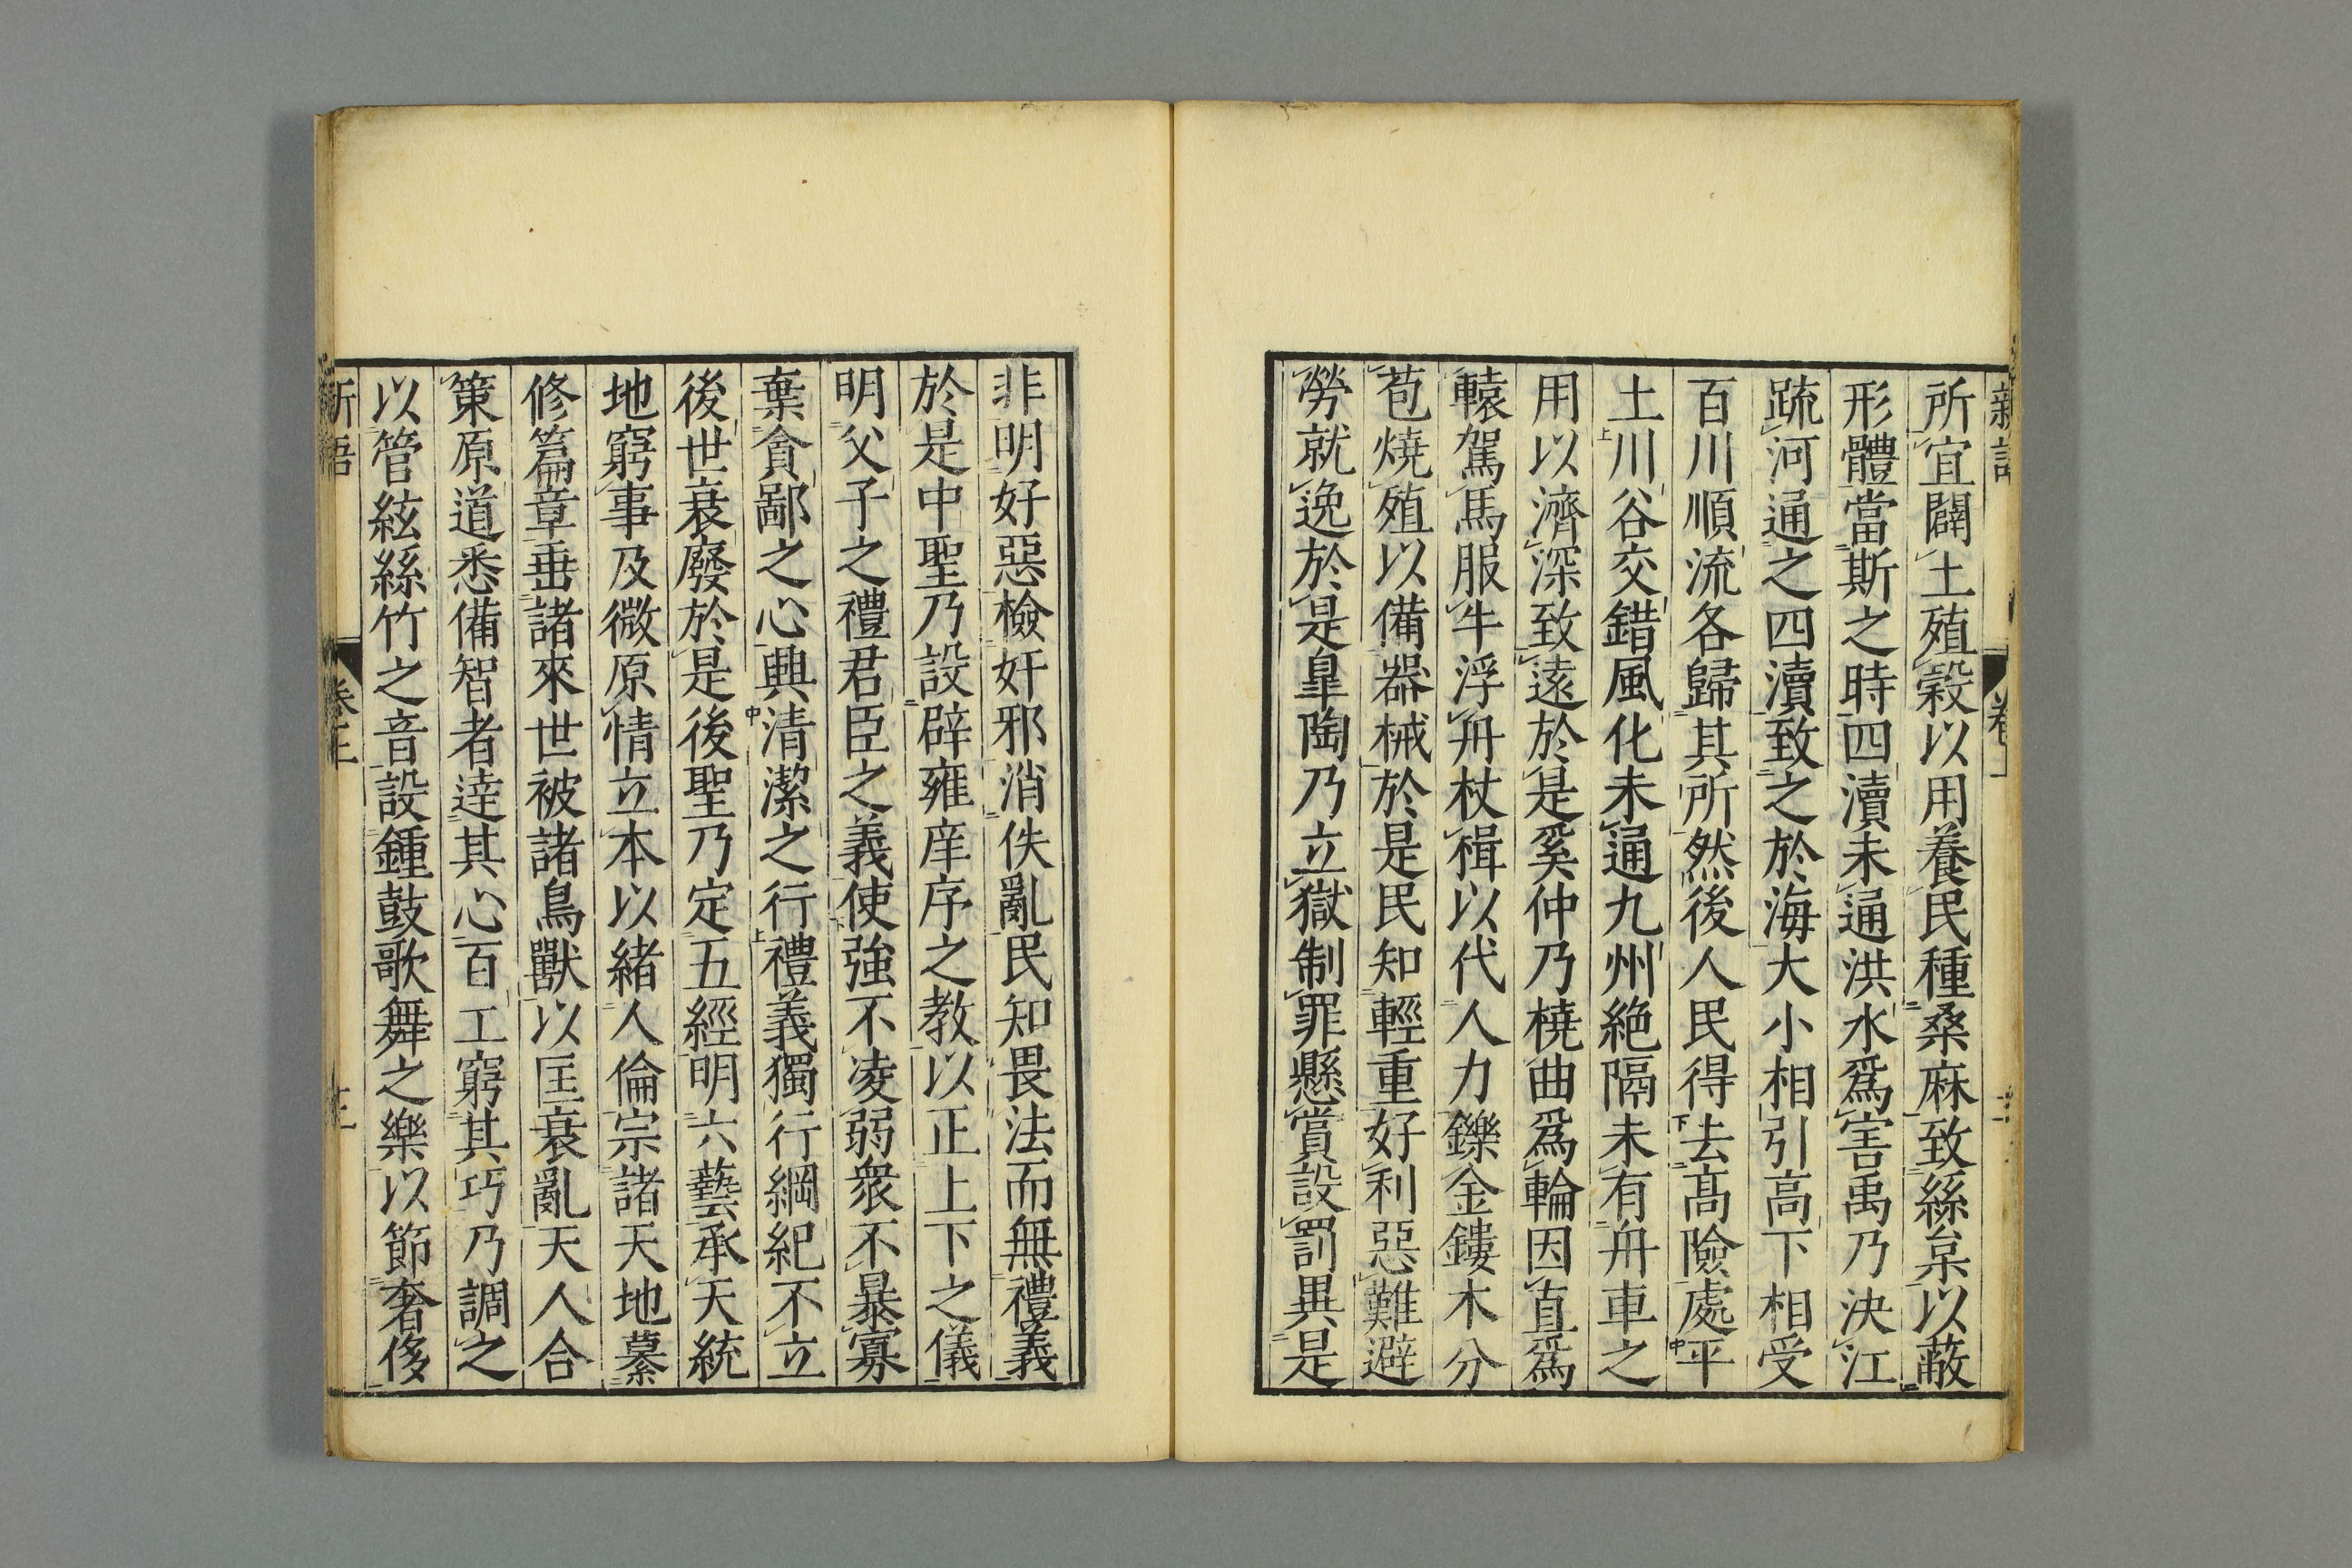 所宜闢土殖穀以用養民種桑麻致絲枲以蔽
形體當斯之時四瀆未通洪水爲害禹乃決江
疏河通之四瀆致之於海大小相引高下相受
百川順流各歸其所然後人民得去髙險處平
土川谷交錯風化未通九州絶隔未有舟車之
用以濟深致遠於是奚仲乃橈曲爲輪因直爲
轅駕馬服牛浮舟杖楫以代人力鑠金鏤木分
苞燒殖以備器械於是民知輕重好利惡難避
勞就逸於是臯陶乃立獄制罪懸賞設罰異是
非明好惡檢奸邪消佚亂民知畏法而無禮義
於是中聖乃設辟雍庠序之教以正上下之儀
明父子之禮君臣之義使強不凌弱衆不暴寡
棄貪鄙之心興清潔之行禮義獨行綱紀不立
後世衰廢於是後聖乃定五經明六藝承天統
地窮事及微原情立本以緒人倫宗諸天地纂
修篇章垂諸來世被諸鳥獸以匡衰亂天人合
策原道悉備智者達其心百工窮其巧乃調之
以管絃絲竹之音設鍾鼓歌舞之樂以節奢侈